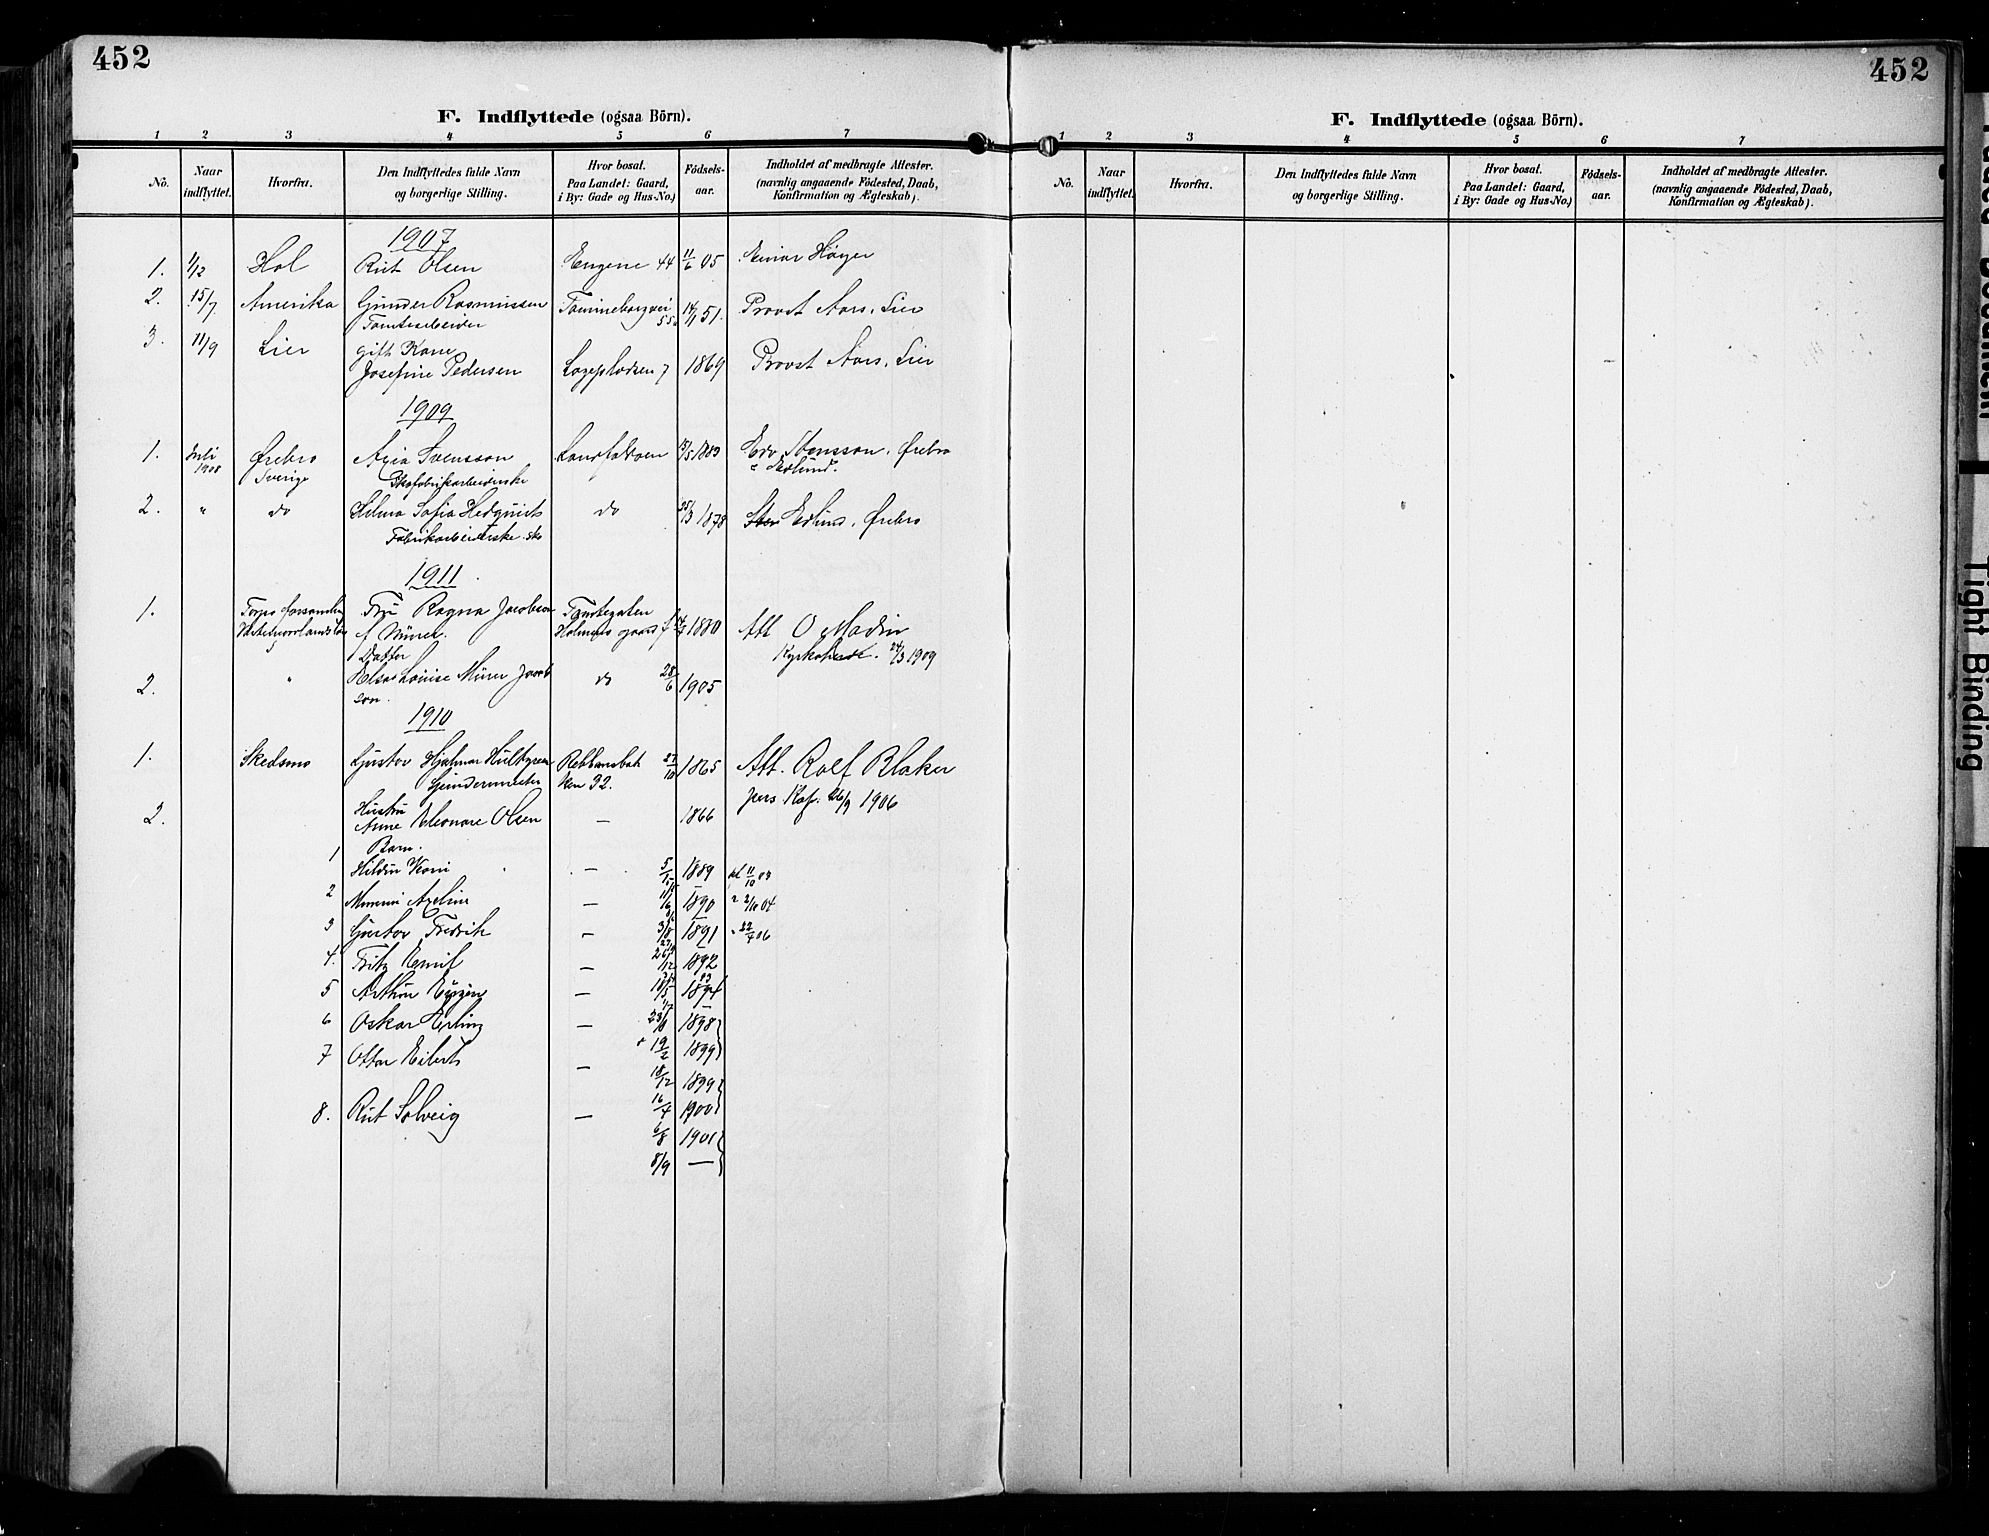 452
F. Indflyttede (ogsaa Börn).
1 2 3 4 5 6 7
No.
Naar indflyttet.
Hvorfra.
Den Indflyttedes fulde Navn
og borgerlige Stilling.
Hvor bosat.
Paa Landet: Gaard,
i By: Gade og Hus-No.)
Fódsels-
aar.
Indholdet af medbragte Attester.
(navnlig angaaende Fódested, Daab,
Konfirmation og Ægteskab).
1907
1. 1/12 Hol Rut Olsen Engene 44 11/6 05 Einar Høyer
2. 15/7 Amerika Gunder Rasmussen 14/1 51. Provst Aars, Lier
Tomtearbeider
3. 11/9 Lier gift Kone
Josefine Pedersen 7 1869 Provst Aars, Lier
1909
1. Juli 1908 Ørebro Svensson Landfaldøen 1883 Edv. Ørebro
Sverige Skofabrikarbeiderske Edlund.
2. " do Hilma Sofia Hedquist do 25/3 1878 Edlund, Ørebro
Fabrikarbeiderske sko
1911
1. Fru Ragna Jacobson Tomtegaten 1880 Att O Modin
f. Mürer. 24/3 1909
Datter
2. " Elsa Louise Mürer Jacob
son. do 28/6 1905
1910
1. Skedsmo Gustav Hjalmar Hultgren Rebbansbak
ken 32. 27/10 1865 Att. Rolf Blaker
pers Kap. 26/9 1906
2. Hustru
Anne Eleonore Olsen — 1866
Barn.
1 — 5/ 1889 11/10 03
2 Axeline — 11/6 1890 " 2/10 04
3 Gustav Fredrik — 3/8 1891 " 22/4 06
4. Fritz Emil — 26/12 1892
5 Arthur — 18/5 1894
6 Oskar Erling — 1898
19/2 1899
7 Ottar Eilert —
18/12 1899
8. Rut Solveig — 16/4 1900
6/8 1901
8/9 —
452
F. Indflyttede (ogsaa Börn).
1 2 3 4 5 6 7
No.
Naar
indflyttet.
Hvorfra.
Den Indflyttedes fulde Navn
og borgerlige Stilling.
Hvor bosat.
Paa Landet: Gaard,
i By: Gade og Hus-No.)
Fódsels-
aar.
Indholdet af medbragte Attester.
(navnlig angaaende Fódested, Daab,
Konfirmation og Ægteskab).
Tight Binding